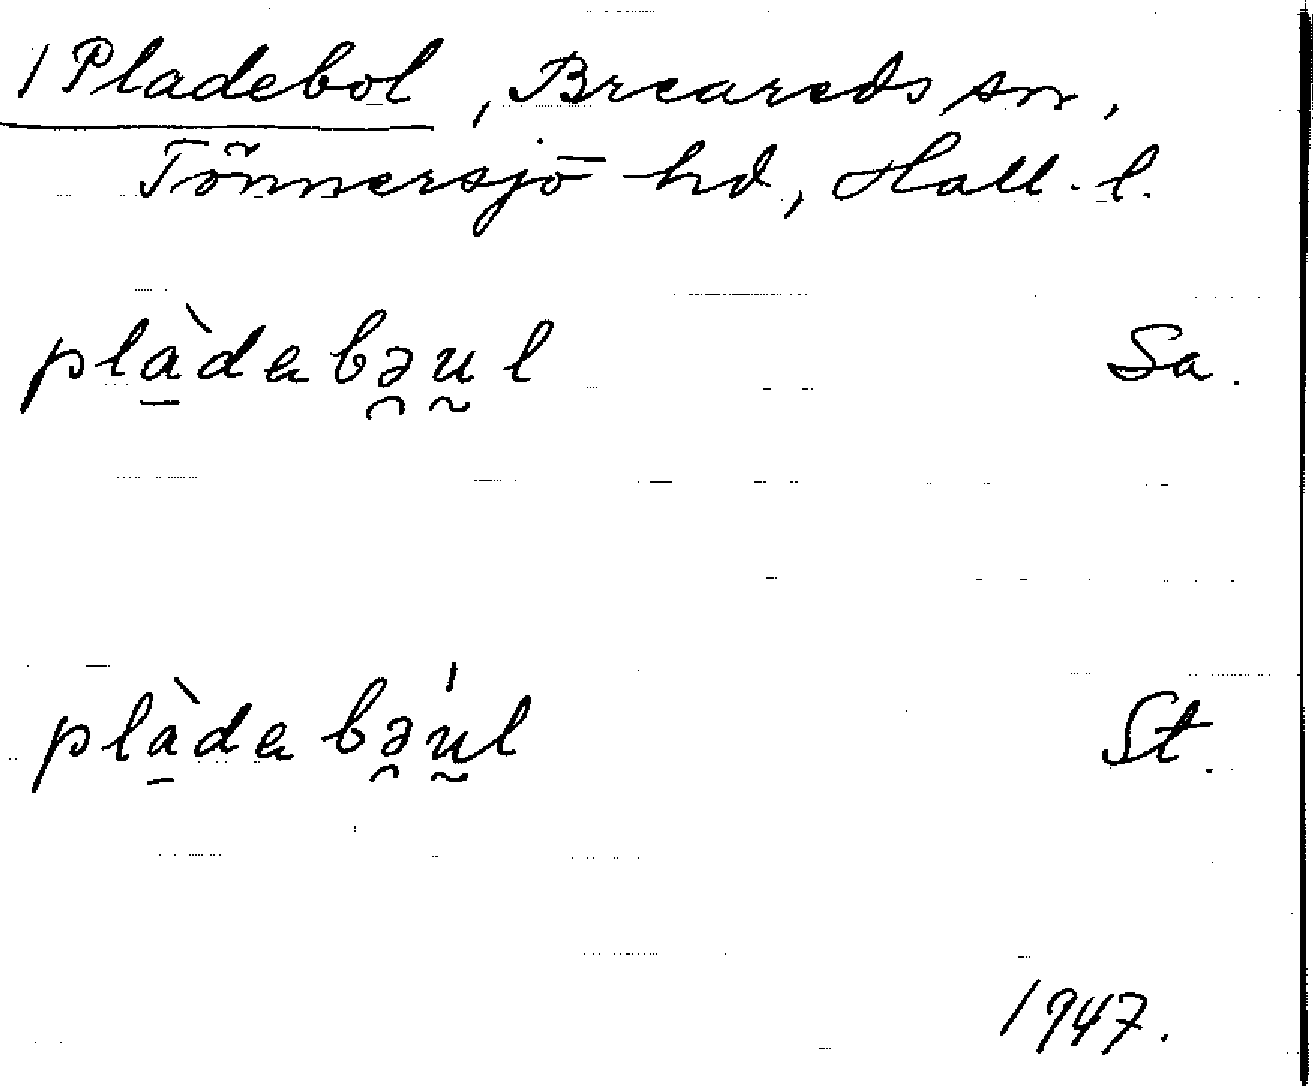 / Pladebol, Breareds sn,
Tönnersjö hd, Hall. l.
plà̱dabə̯ṵl Sa.
plà̱dabə̯ṵ́l St.
1947.